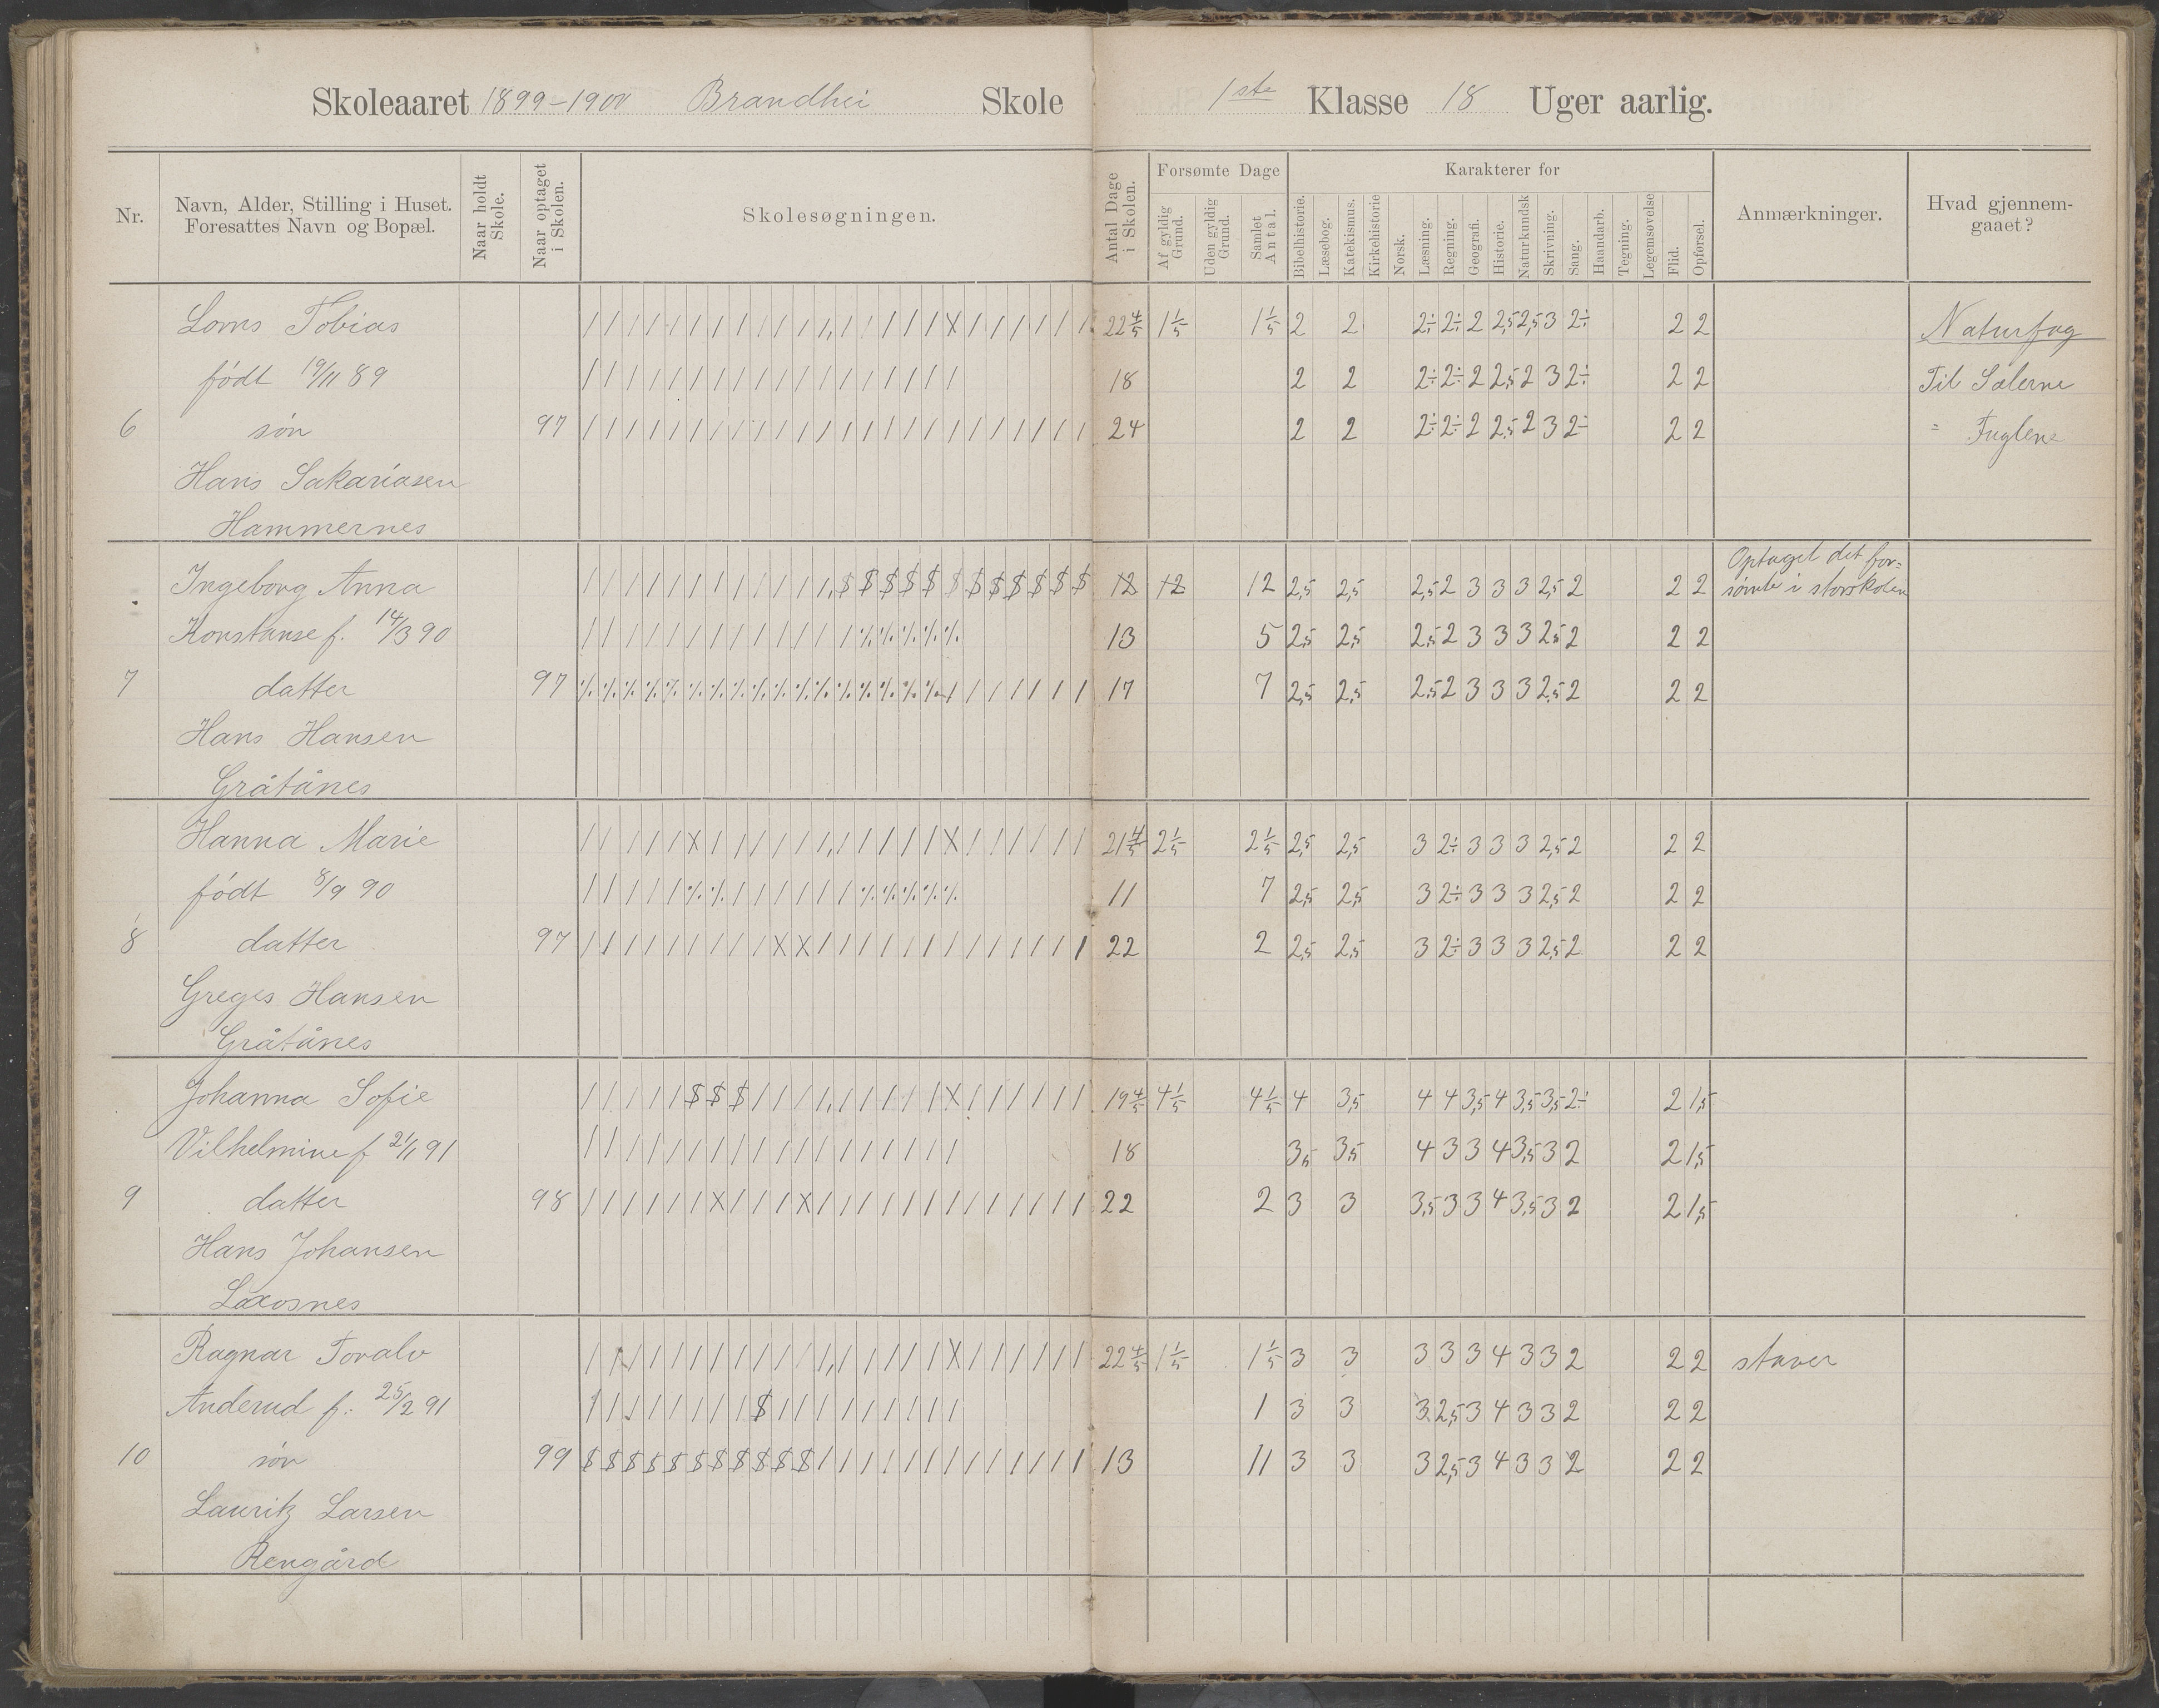 Skoleaaret 1899-1900 Brandhei Skole 1ste Klasse 18 Uger aarlig.
Nr. Navn, Alder, Stilling i Huset. Foresattes Navn og Bopæl. Naar holdt Skole. Naar optaget i Skolen. Skolesøgningen. Antal Dage i Skolen. Forsømte Dage Af gyldig Grund. Uden gyldig Grund. Samlet Antal. Karakterer for Bibelhistorie. Læsebog. Katekismus. Kirkehistorie Norsk. Læsning. Regning. Geografi. Historie. Naturkundsk Skrivning. Sang. Haandarb. Tegning. Legemsøvelse Flid. Opførsel. Anmærkninger. Hvad gjennemgaaet?
Loms Tobias 22 4/5 1 1/5 1 1/5 2 2 2÷ 2÷ 2 2,5 2,5 3 2÷ 2 2 Naturfag
født 19/11 89 18 2 2 2÷ 2÷ 2 2,5 2 3 2÷ 2 2 Til Sælerne
6 søn 97 24 2 2 2÷ 2÷ 2 2,5 2 3 2÷ 2 2 " Fuglene
Hans Sakariasen
Hammernes
Ingeborg Anna 12 12 12 2,5 2,5 2,5 2 3 3 3 2,5 2 2 2 Optaget det forsømte i storskolen
Konstanse f. 14/3 90 13 5 2,5 2,5 2,5 2 3 3 3 2,5 2 2 2
7 datter 97 17 7 2,5 2,5 2,5 2 3 3 3 2,5 2 2 2
Hans Hansen
Gråtånes
Hanna Marie 21 4/5 2 1/5 2 1/5 2,5 2,5 3 2÷ 3 3 3 2,5 2 2 2
født 8/9 90 11 7 2,5 2,5 3 2÷ 3 3 3 2,5 2 2 2
8 datter 97 22 2 2,5 2,5 3 2÷ 3 3 3 2,5 2 2 2
Greges Hansen
Gråtånes
Johanna Sofie 19 4/5 4 1/5 4 1/5 4 3,5 4 4 3,5 4 3,5 3,5 2÷ 2 1,5
Vilhelmine f 21/1 91 18 3,5 3,5 4 3 3 4 3,5 3 2 2 1,5
9 datter 98 22 2 3 3 3,5 3 3 4 3,5 3 2 2 1,5
Hans Johansen
Laxosnes
Ragnar Toralv 22 4/5 1 1/5 1 1/5 3 3 3 3 3 4 3 3 2 2 2 staver
Anderud f. 25/2 91 1 3 3 3 2,5 3 4 3 3 2 2 2
10 søn 99 13 11 3 3 3 2,5 3 4 3 3 2 2 2
Lauritz Larsen
Rengård